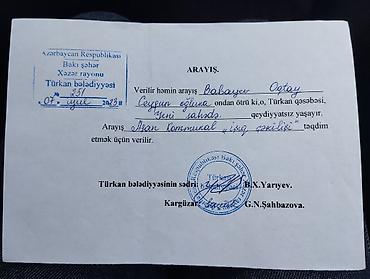 Azərbaycan Respublikası
Bakı şəhər
Xəzər rayonu
Türkan bələdiyyəsi
№ 251
"07" iyul 2023 il
ARAYIŞ.
Verilir həmin arayış Babayev Oqtay
Ceyqun oğluna ondan ötrü ki,o, Türkan qəsəbəsi,
Yeni sahədə qeydiyyatsız yaşayır.
Arayış Azan Kommunal "işıq çəkilişi" təqdim
etmək üçün verilir.
Türkan bələdiyyəsinin sədri: B.X.Yarıyev.
Kargüzar: G.N.Şahbazova.
Respublikası Bakı şəhər
Türkan